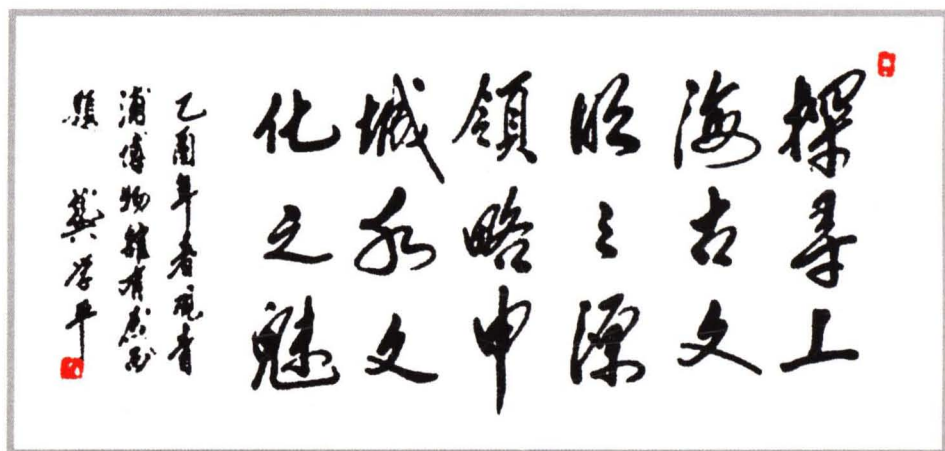 探寻上
海古文
明之源
领略申
城水文
化之魅
乙酉年春观青
浦博物馆有感而
题 龚学平